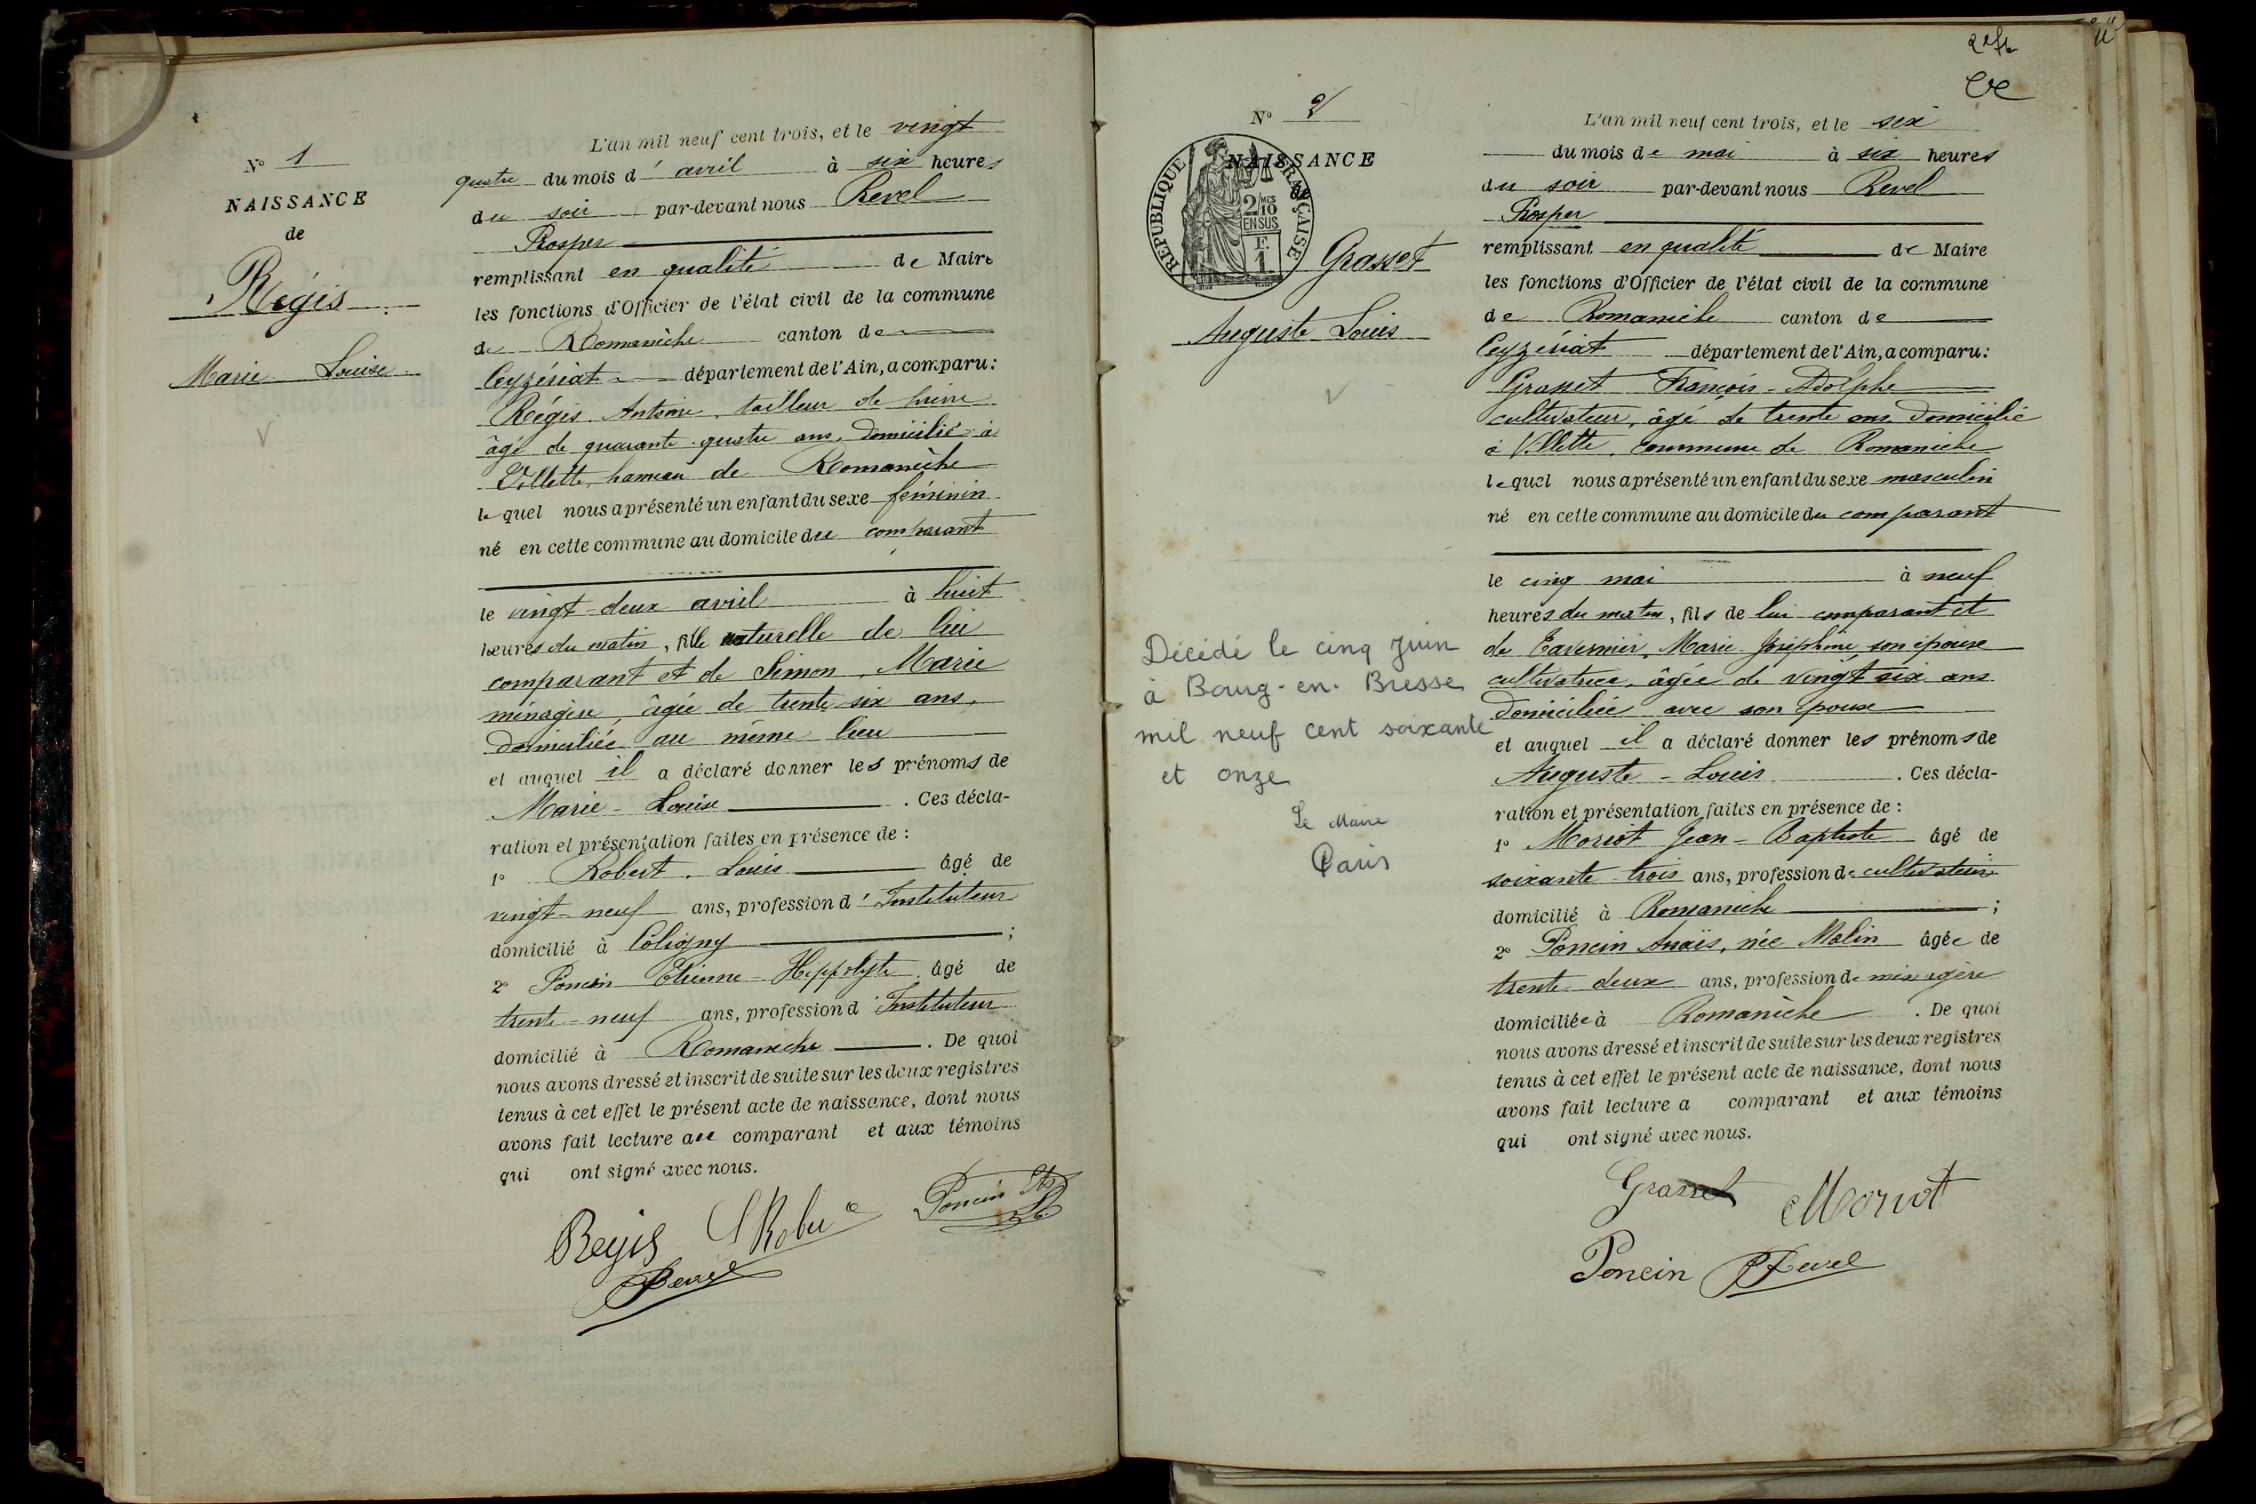 N° 1
NAISSANCE
de
Régis
Marie Louise
L'an mil neuf cent trois, et le vingt
quatre du mois d'avril à six heures
du soir par-devant nous Revel
Prosper
remplissant en qualité de Maire
les fonctions d'Officier de l'état civil de la commune
de Romanèche canton de
Ceyzériat département de l'Ain, a comparu:
Régis Antoine, tailleur de pierre
âgé de quarante-quatre ans, domicilié à
Villette, hameau de Romanèche
lequel nous a présenté un enfant du sexe féminin
né en cette commune au domicile du comparant
le vingt-deux avril à huit
heures du matin, fille naturelle de lui
comparant et de Simon, Marie
ménagère, âgée de trente-six ans,
domiciliée au même lieu
et auquel il a déclaré donner les prénoms de
Marie-Louise . Ces décla-
ration et présentation faites en présence de :
1° Robert, Louis âgé de
vingt-neuf ans, profession d'Instituteur
domicilié à Coligny ;
2° Poncin Etienne-Hippolyte âgé de
trente-neuf ans, profession d'Instituteur
domicilié à Romanèche . De quoi
nous avons dressé et inscrit de suite sur les deux registres
tenus à cet effet le présent acte de naissance, dont nous
avons fait lecture au comparant et aux témoins
qui ont signé avec nous.
Regis Poncin
Revel
2
N° 2
NAISSANCE
de
REPUBLIQUE FRANÇAISE
2/10 EN SUS
F. 1
Grasset
Auguste Louis
Décédé le cinq Juin
à Bourg-en-Bresse
mil neuf cent soixante
et onze
Le Maire
Paris
L'an mil neuf cent trois, et le six
du mois de mai à six heures
du soir par-devant nous Revel
Prosper
remplissant en qualité de Maire
les fonctions d'Officier de l'état civil de la commune
de Romanèche canton de
Ceyzériat département de l'Ain, a comparu:
Grasset François-Adolphe
cultivateur, âgé de trente ans domicilié
à Villette, commune de Romanèche
lequel nous a présenté un enfant du sexe masculin
né en cette commune au domicile du comparant
le cinq mai à neuf
heures du matin, fils de lui comparant et
de Tavernier, Marie Joséphine, son épouse
cultivatrice, âgée de vingt six ans
domiciliée avec son époux
et auquel il a déclaré donner les prénoms de
Auguste-Louis . Ces décla-
ration et présentation faites en présence de :
1° Morivot Jean-Baptiste âgé de
soixante trois ans, profession de cultivateur
domicilié à Romanèche ;
2° Poncin Anaïs, née Molin âgée de
trente deux ans, profession de ménagère
domiciliée à Romanèche . De quoi
nous avons dressé et inscrit de suite sur les deux registres
tenus à cet effet le présent acte de naissance, dont nous
avons fait lecture a comparant et aux témoins
qui ont signé avec nous.
Grasset Morivot
Poncin Revel